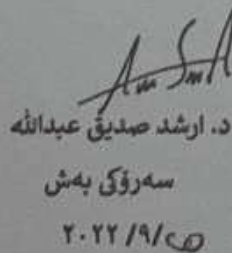 د. ارشد صدیق عبدالله
سەرۆکی بەش
٢٠٢٢/٩/